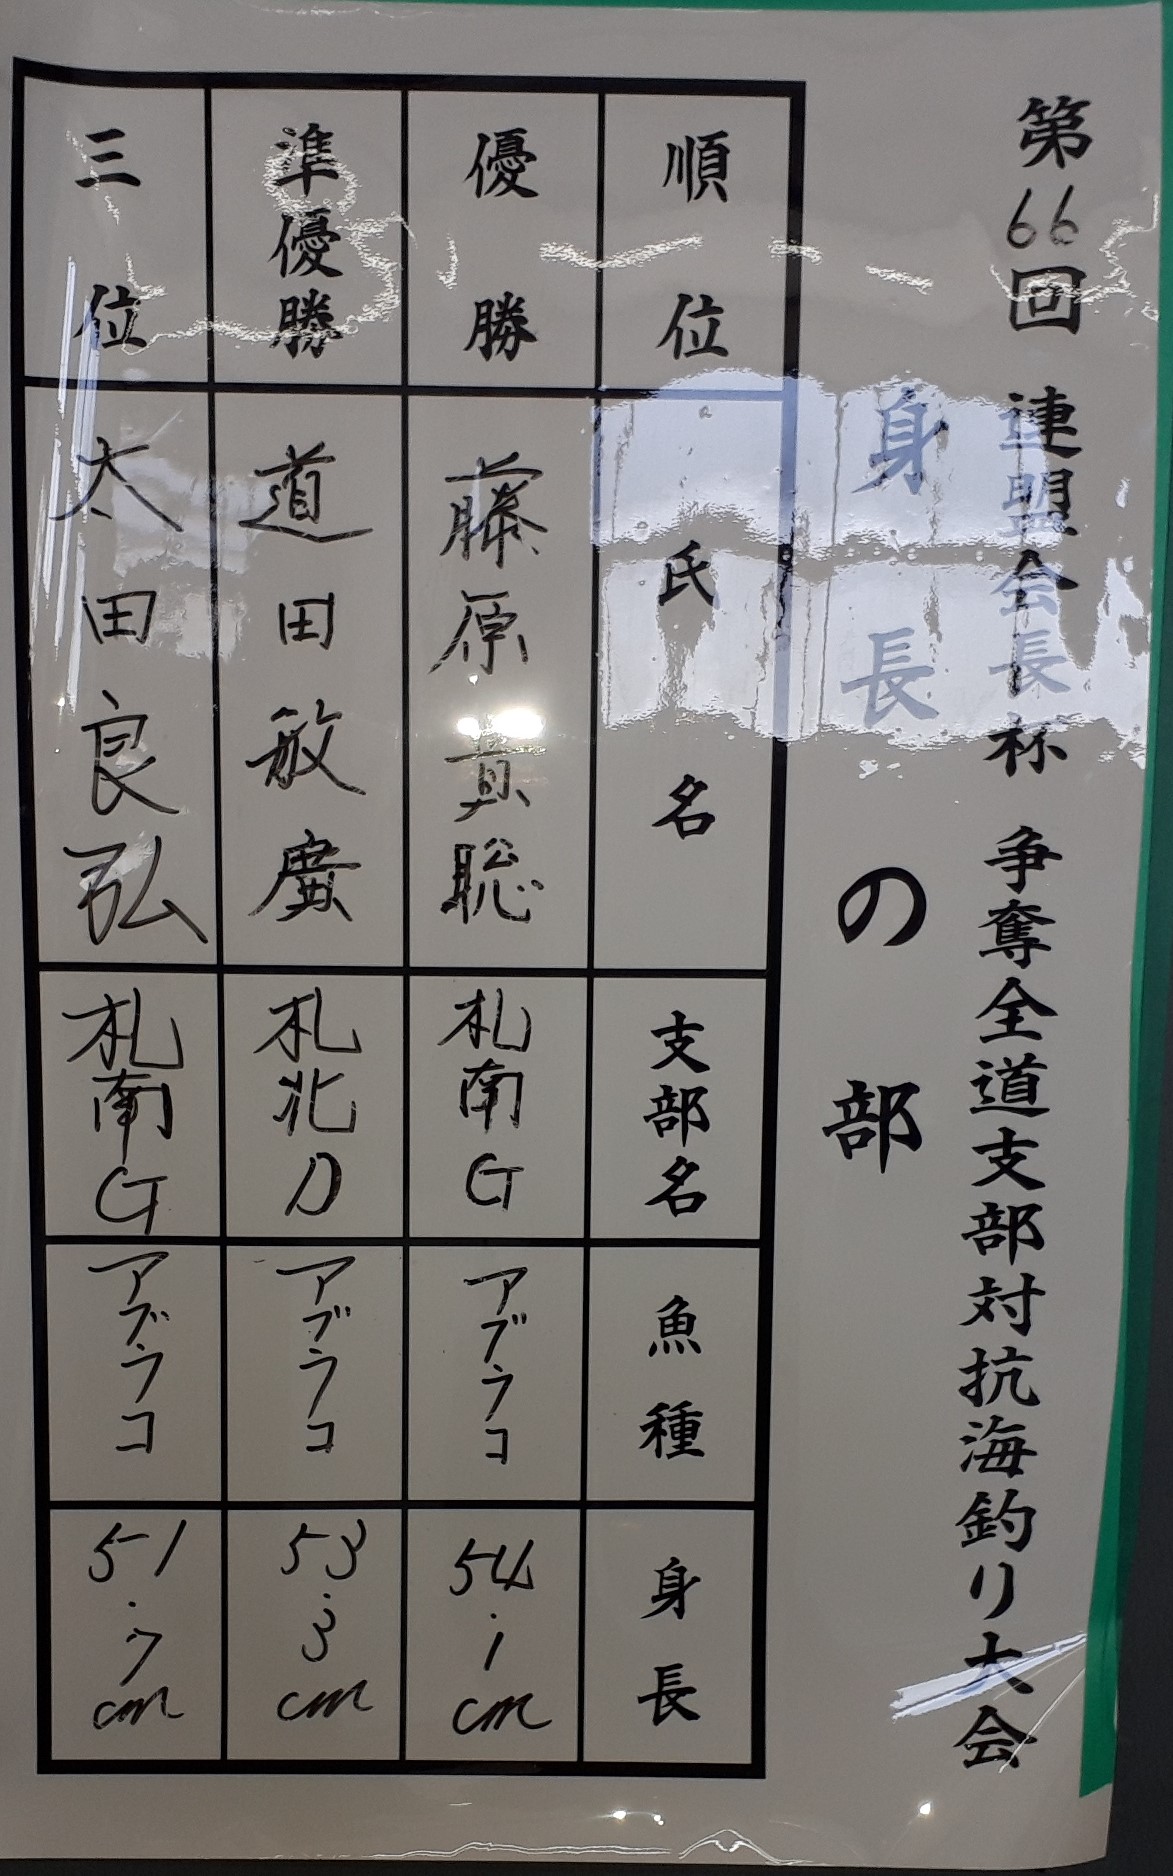 第66回 連盟会長杯 争奪全道支部対抗海釣り大会
身長の部
順位 氏名 支部名 魚種 身長
優勝 藤原真聡 札南G アブラコ 54.1cm
準優勝 道田敏廣 札北D アブラコ 53.3cm
三位 太田良弘 札南G アブラコ 51.7cm